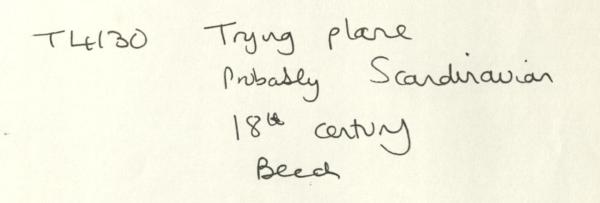 T4130 Trying plane
Probably Scandinavian
18th century
Beech